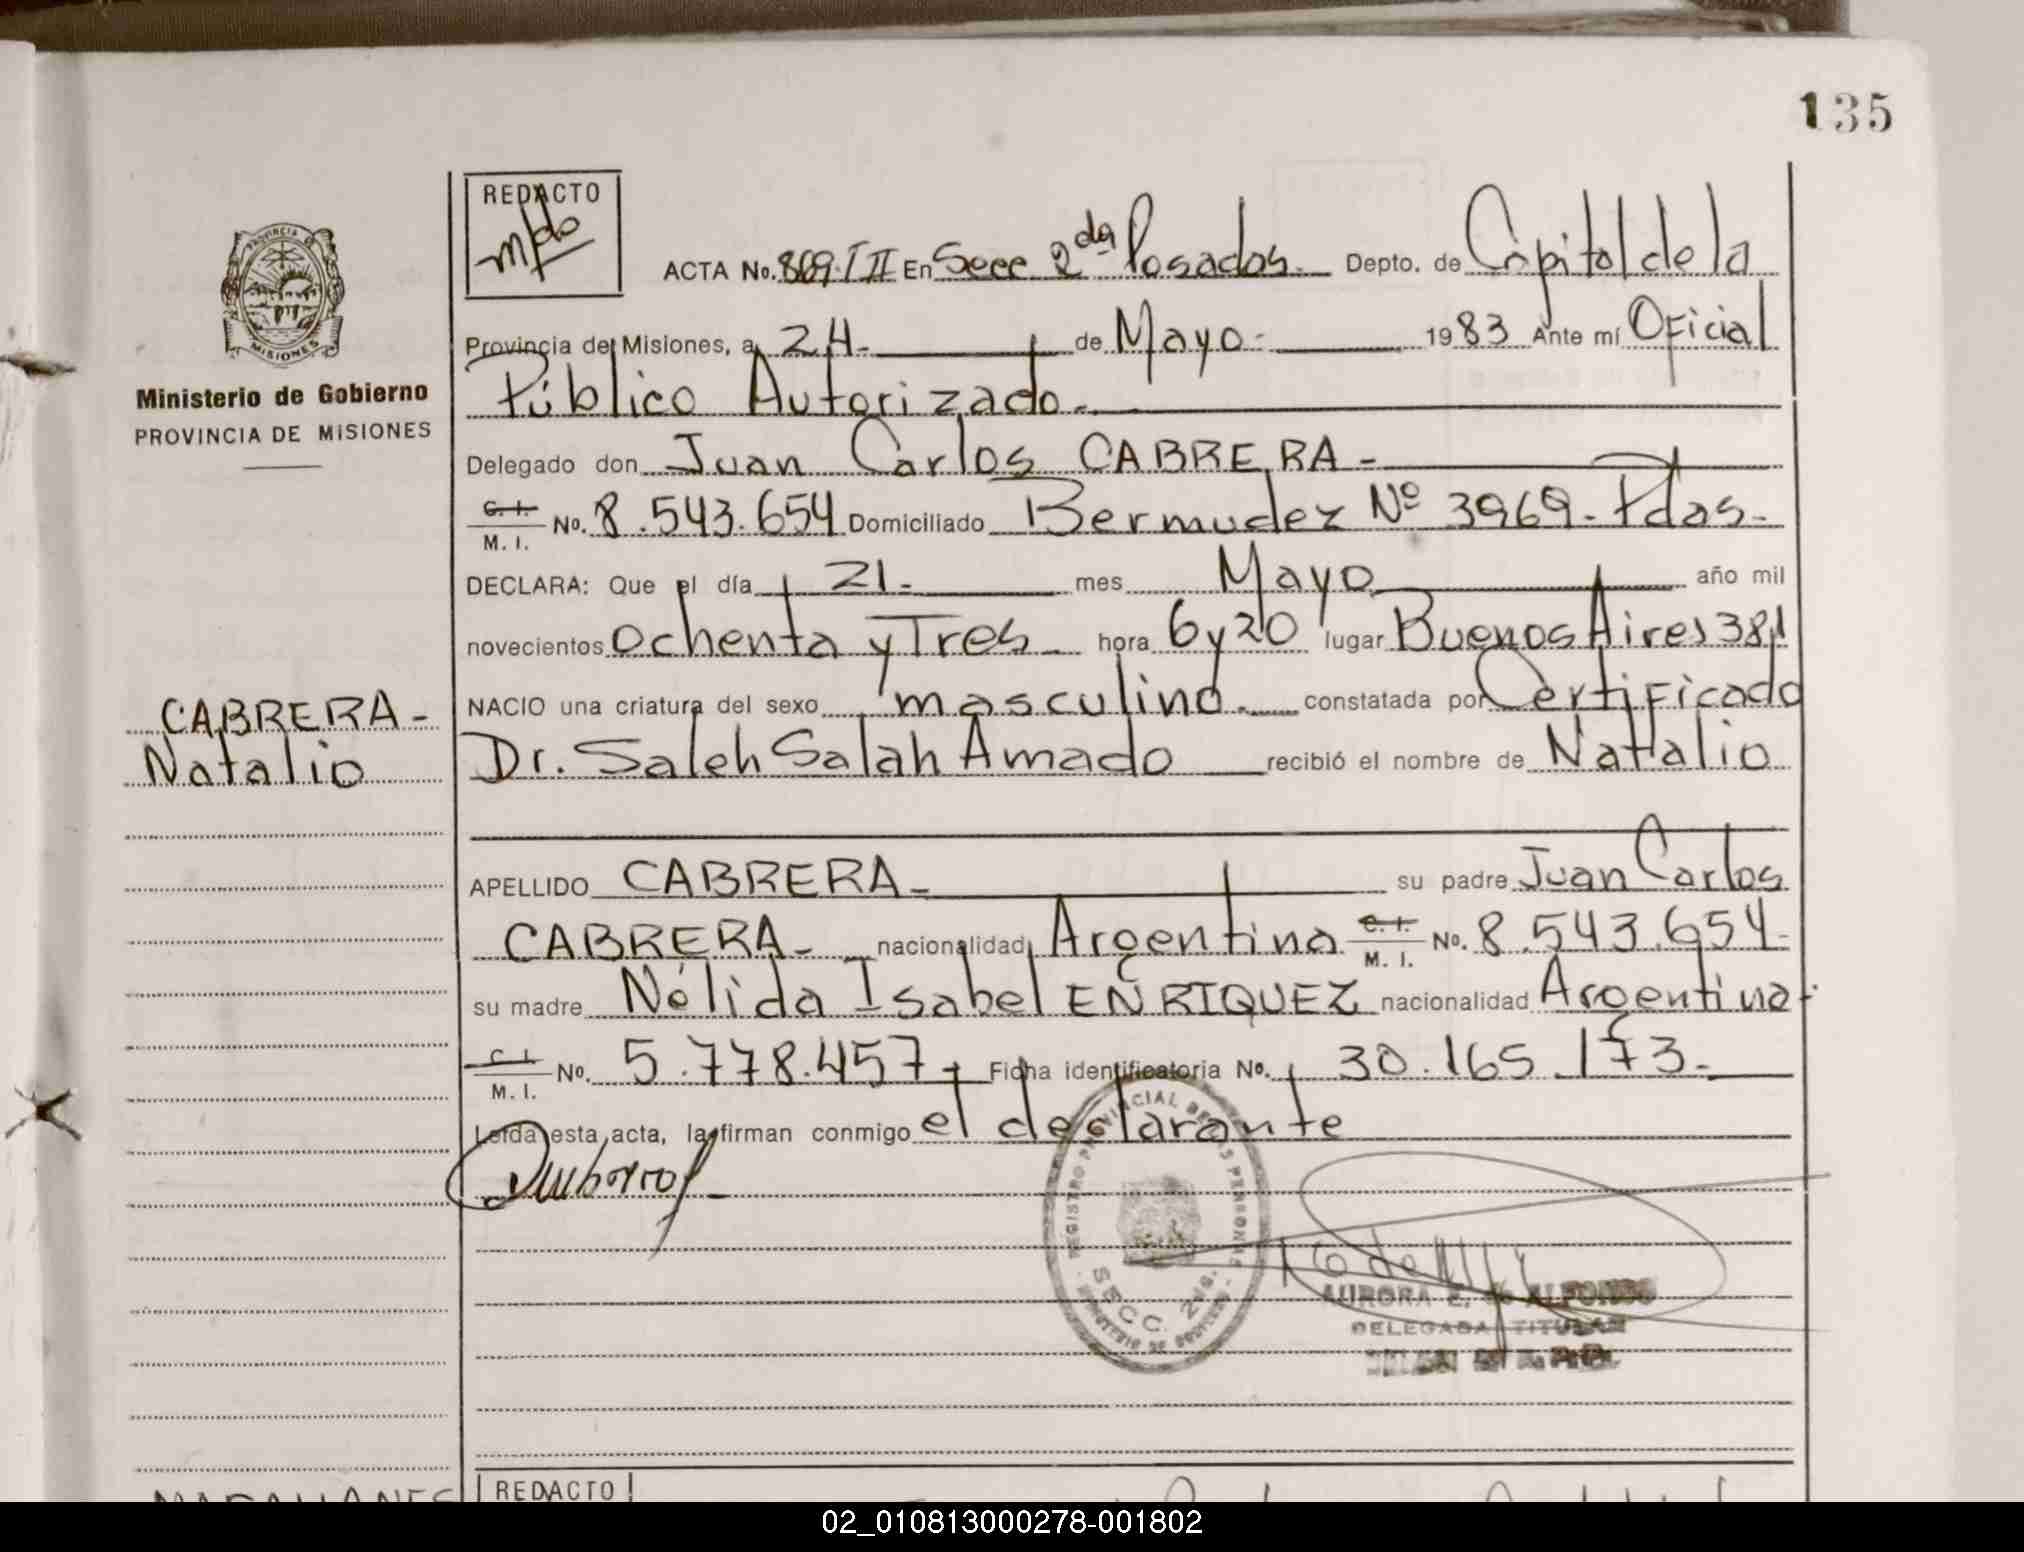 135
REDACTO
ACTA No. 869. III En Secc 2da Posadas. Depto. de Capital de la
PROVINCIA
MISIONES
Provincia de Misiones, a 24. de Mayo. 1983 Ante mí Oficial
Ministerio de Gobierno
Público Autorizado.
PROVINCIA DE MISIONES
Delegado don Juan Carlos CABRERA -
C. I.
M. I. No. 8.543.654 Domiciliado Bermudez Nº 3969. Pdas.
DECLARA: Que el día 21. mes Mayo año mil
novecientos ochenta y Tres. hora 6 y 20 lugar Buenos Aires 381
NACIO una criatura del sexo masculino. constatada por Certificado
CABRERA -
Natalio
Dr. Saleh Salah Amado recibió el nombre de Natalio
APELLIDO CABRERA - su padre Juan Carlos
CABRERA - nacionalidad Argentina C. I. M. I. No. 8.543.654
su madre Nélida Isabel ENRIQUEZ nacionalidad Argentina
C. I.
M. I. No. 5.778.457 Ficha identificatoria No. 30.165.173.
Leída esta acta, la firman conmigo el declarante
REGISTRO PROVINCIAL DE LAS PERSONAS
SECC. 2da.
MINISTERIO DE GOBIERNO
AURORA E. de ALFONSO
DELEGADA TITULAR
REDACTO
02_010813000278-001802